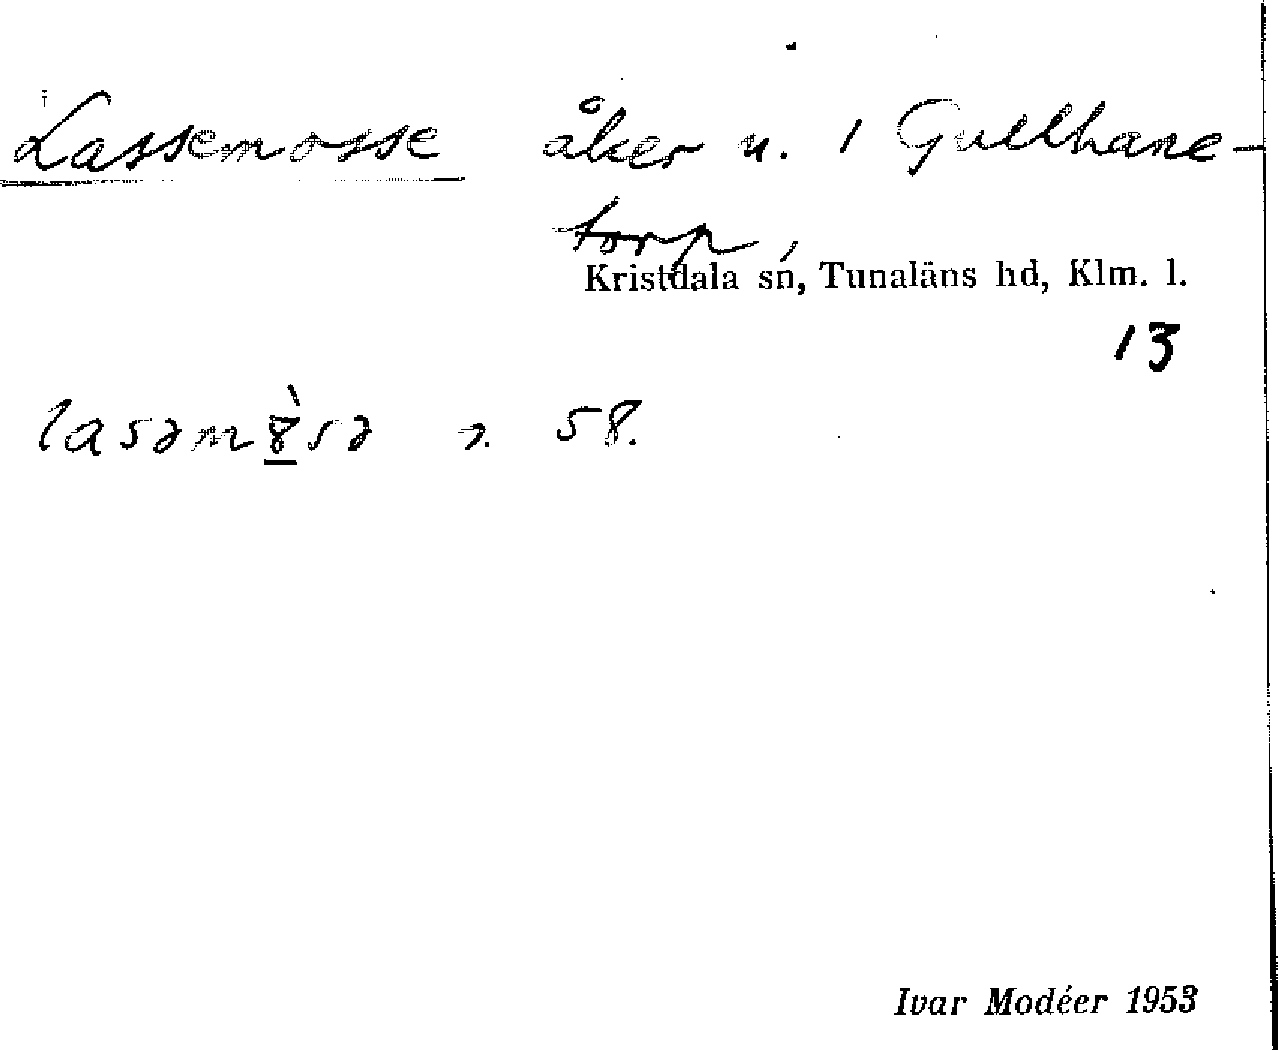 Lassemosse åker n. i Gullhane-
torp,
Kristdala sn, Tunaläns hd, Klm. l.
13
lasəm8̀sə 58.
Ivar Modéer 1953